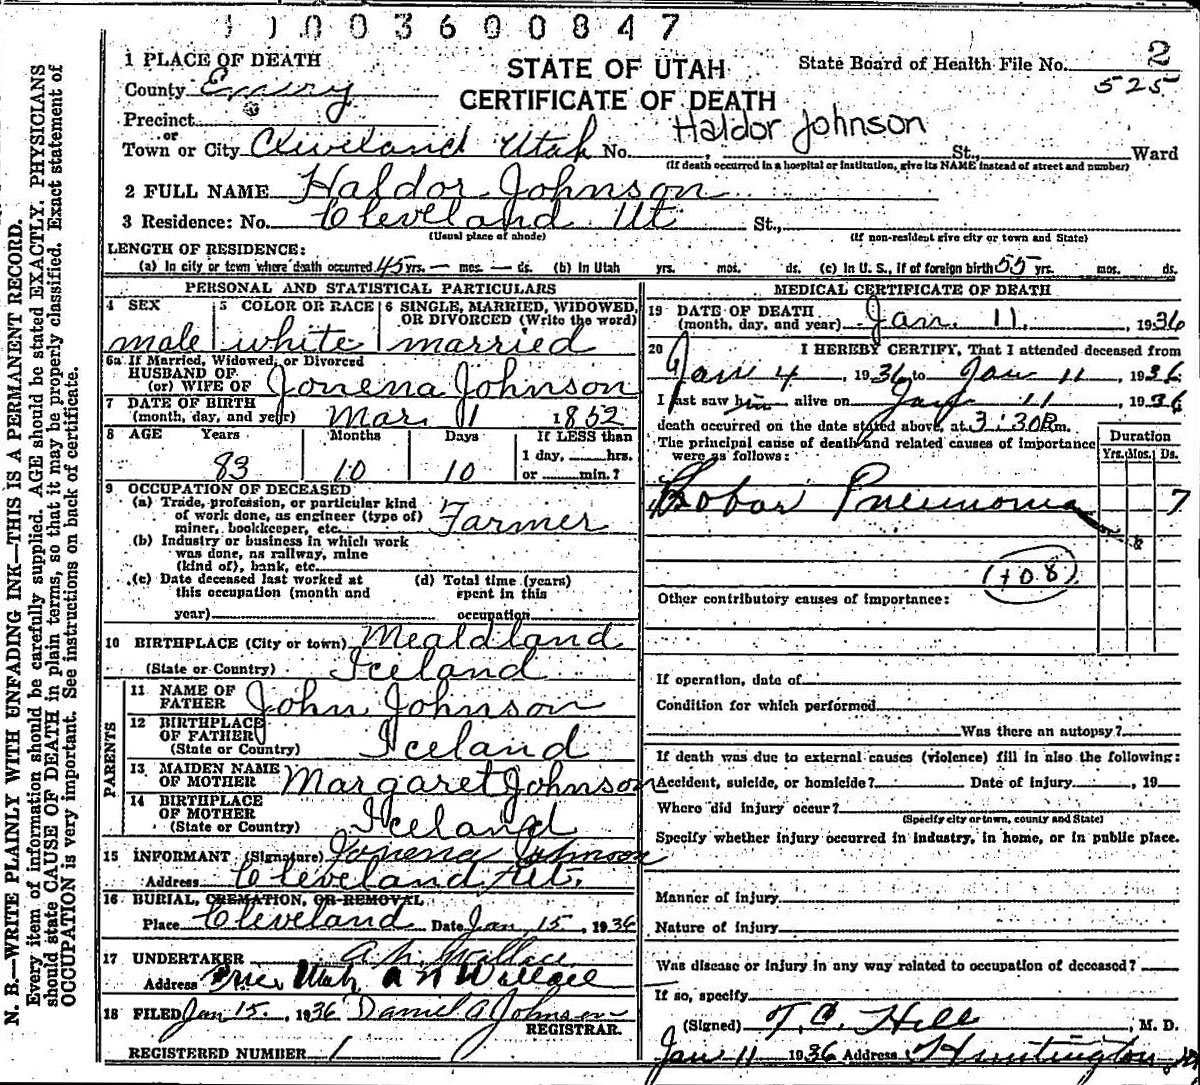 1 1 0 0 3 6 0 0 8 4 7
1 PLACE OF DEATH
STATE OF UTAH
CERTIFICATE OF DEATH
State Board of Health File No. 2
525
County Emery
Precinct
or
Town or City Cleveland Utah No. , St., Ward
Haldor Johnson
(If death occurred in a hospital or institution, give its NAME instead of street and number)
2 FULL NAME Haldor Johnson
3 Residence: No. Cleveland Ut St.,
(Usual place of abode) (If non-resident give city or town and State)
LENGTH OF RESIDENCE:
(a) In city or town where death occurred 45 yrs. — mos. — ds. (b) In Utah yrs. mos. ds. (c) In U. S., if of foreign birth 55 yrs. mos. ds.
PERSONAL AND STATISTICAL PARTICULARS
4 SEX
male
5 COLOR OR RACE
white
6 SINGLE, MARRIED, WIDOWED,
OR DIVORCED (Write the word)
married
6a If Married, Widowed, or Divorced
HUSBAND OF
(or) WIFE OF Jonena Johnson
7 DATE OF BIRTH
(month, day, and year) Mar. 1 1852
8 AGE Years Months Days If LESS than
1 day, hrs.
or min.?
83 10 10
9 OCCUPATION OF DECEASED
(a) Trade, profession, or particular kind
of work done, as engineer (type of)
miner, bookkeeper, etc. Farmer
(b) Industry or business in which work
was done, as railway, mine
(kind of), bank, etc.
(c) Date deceased last worked at
this occupation (month and
year)
(d) Total time (years)
spent in this
occupation
10 BIRTHPLACE (City or town) Mealdland
(State or Country) Iceland
PARENTS
11 NAME OF
FATHER John Johnson
12 BIRTHPLACE
OF FATHER
(State or Country) Iceland
13 MAIDEN NAME
OF MOTHER Margaret Johnson
14 BIRTHPLACE
OF MOTHER
(State or Country) Iceland
15 INFORMANT (Signature) Jonena Johnson
Address Cleveland, Ut.
16 BURIAL, CREMATION, OR REMOVAL
Place Cleveland Date Jan. 15, 1936
17 UNDERTAKER A. N. Wallace
Address Price Utah A N Wallace
18 FILED Jan 15, 1936 Daniel A Johnson
REGISTRAR.
REGISTERED NUMBER 1
MEDICAL CERTIFICATE OF DEATH
19 DATE OF DEATH
(month, day, and year) Jan. 11, 1936
20 I HEREBY CERTIFY, That I attended deceased from
Jan 4, 1936 to Jan 11, 1936
I last saw him alive on Jan 11, 1936
death occurred on the date stated above, at 3:30 P.m.
The principal cause of death and related causes of importance
were as follows:
Duration
Yrs. Mos. Ds.
Lobar Pneumonia 7
108
Other contributory causes of importance:
If operation, date of
Condition for which performed
Was there an autopsy?
If death was due to external causes (violence) fill in also the following:
Accident, suicide, or homicide? Date of injury , 19
Where did injury occur?
(Specify city or town, county and State)
Specify whether injury occurred in industry, in home, or in public place.
Manner of injury
Nature of injury
Was disease or injury in any way related to occupation of deceased?
If so, specify
(Signed) T. C. Hill, M. D.
Jan 11 1936 Address Huntington,
N. B.—WRITE PLAINLY WITH UNFADING INK—THIS IS A PERMANENT RECORD.
Every item of information should be carefully supplied. AGE should be stated EXACTLY. PHYSICIANS
should state CAUSE OF DEATH in plain terms, so that it may be properly classified. Exact statement of
OCCUPATION is very important. See instructions on back of certificate.